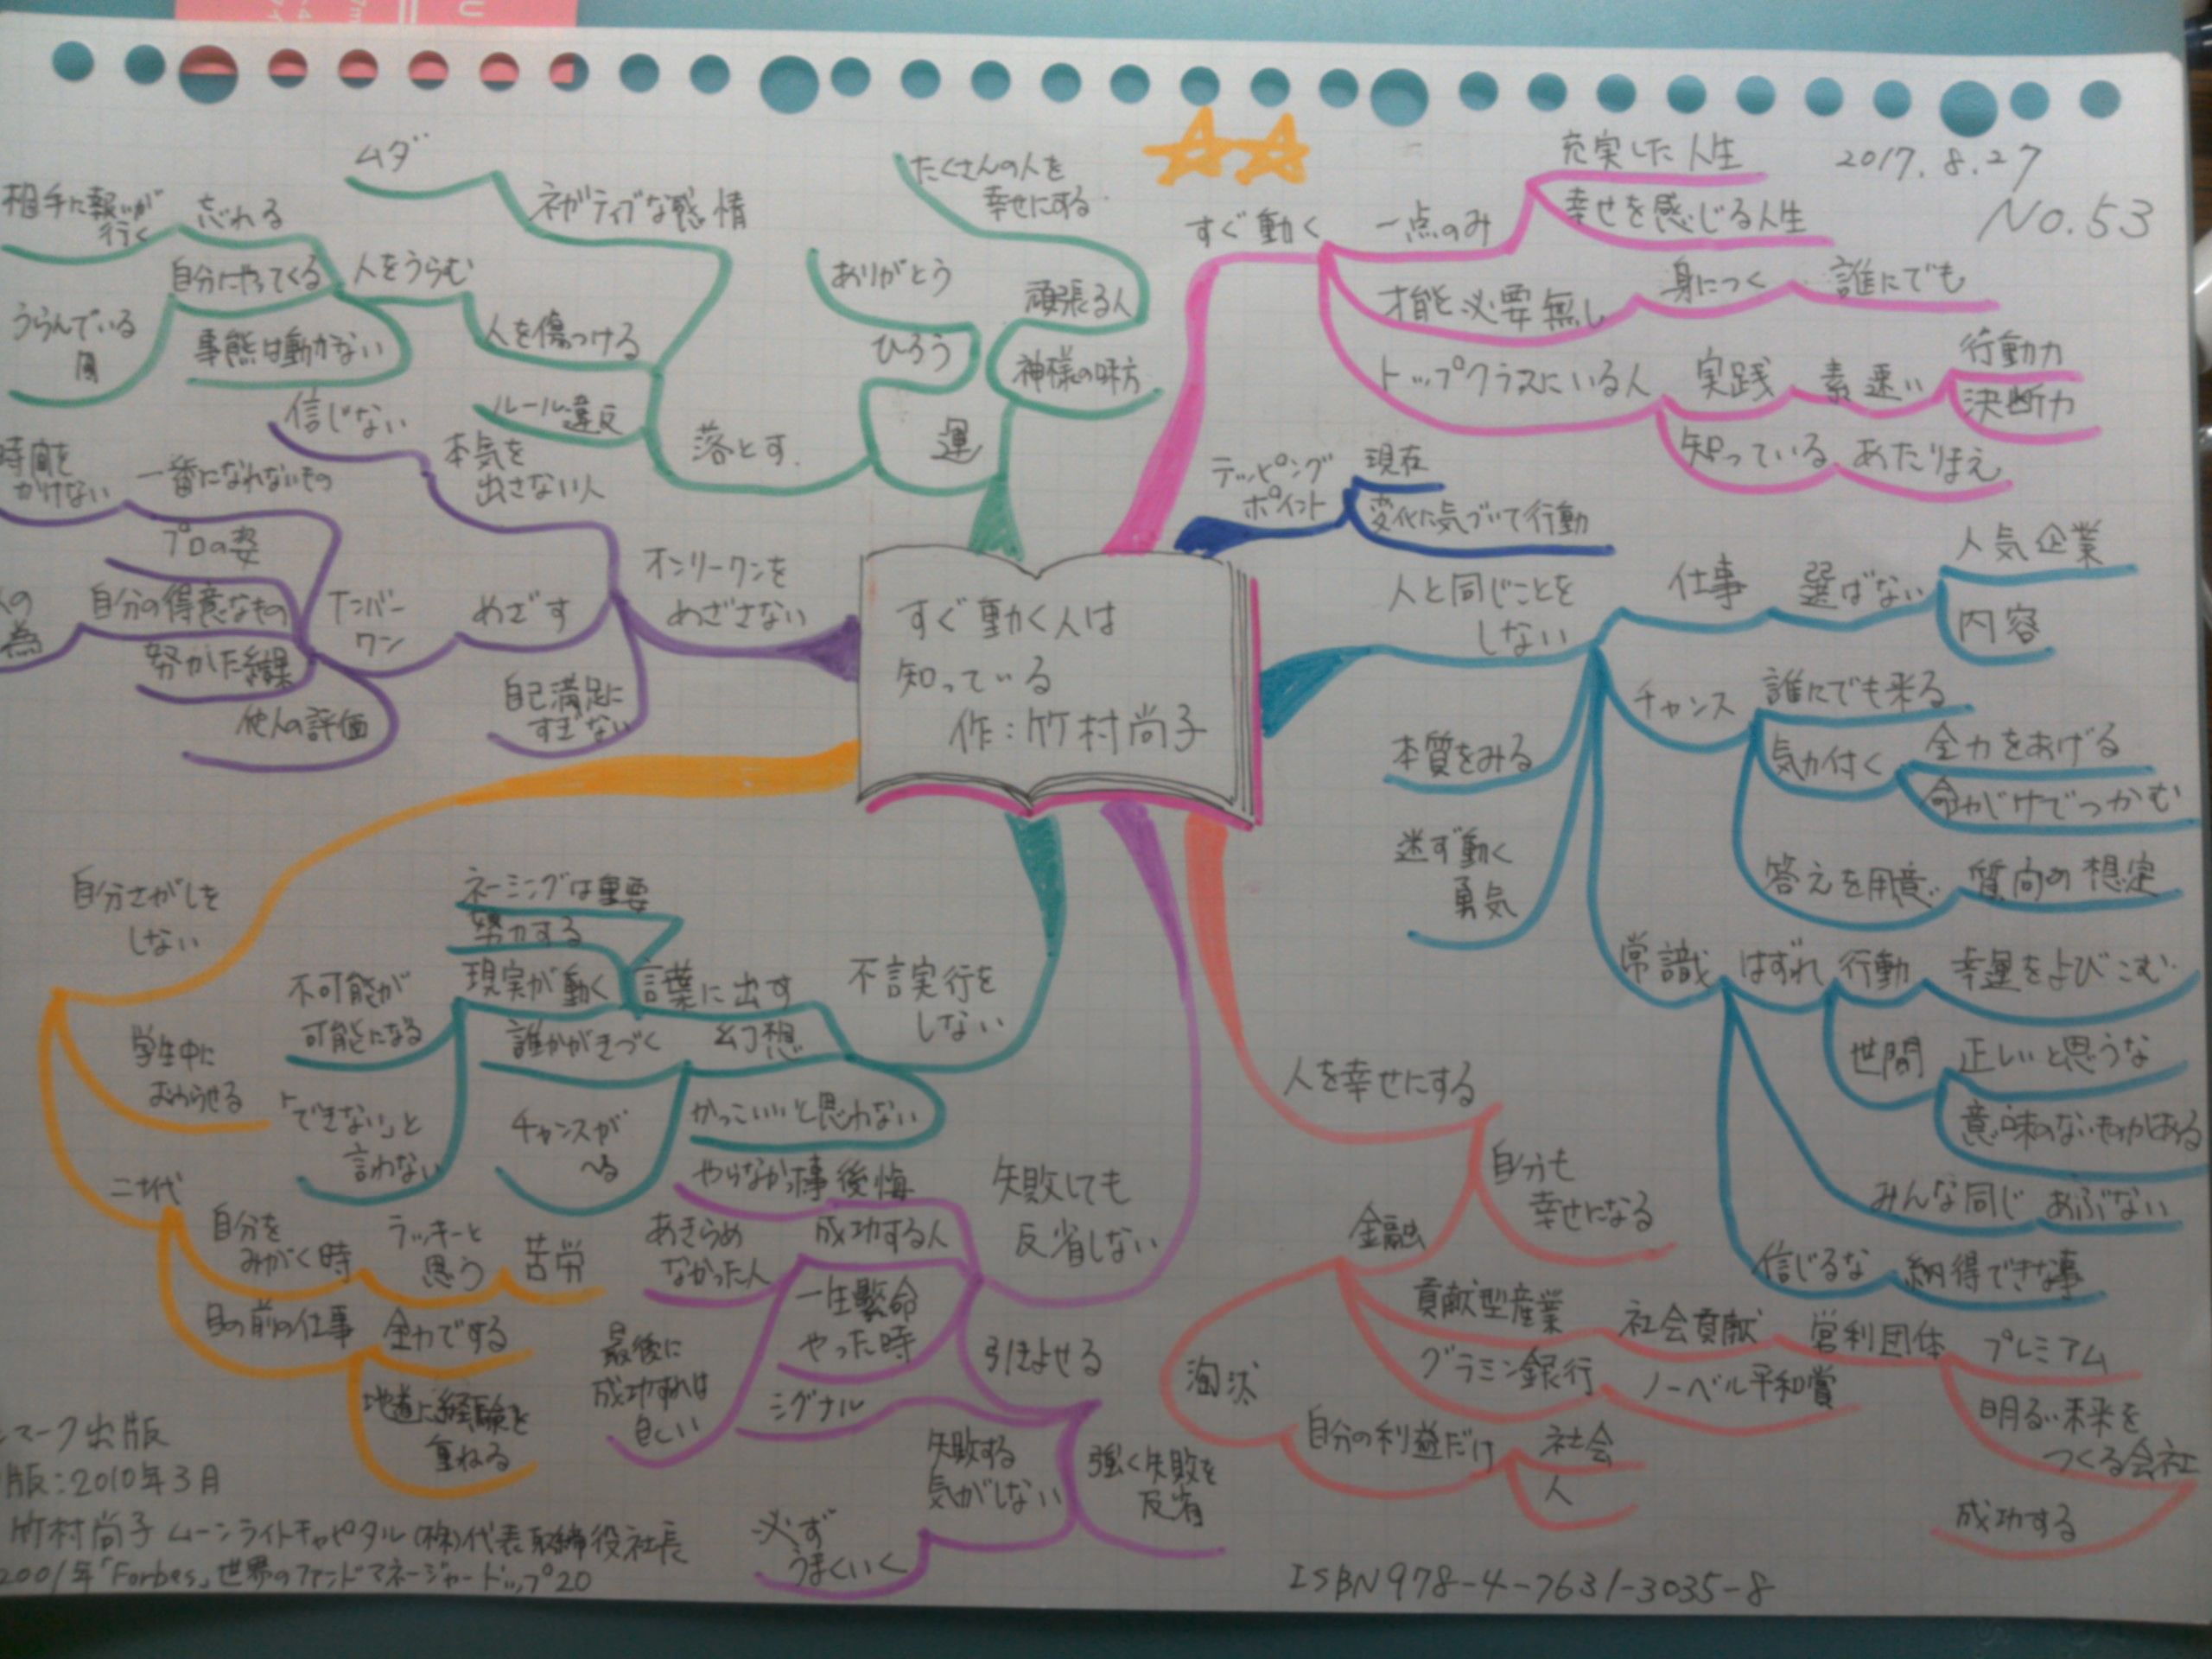 2017.8.27
No.53
すぐ動く人は
知っている
作:竹村尚子
すぐ動く
一点のみ
充実した人生
幸せを感じる人生
才能必要無し
身につく
誰にでも
トップクラスにいる人
実践
素速い
行動力
決断力
知っている
あたりまえ
テッピング
ポイント
現在
変化に気づいて行動
人と同じことを
しない
仕事
選ばない
人気企業
内容
チャンス
誰にでも来る
気が付く
全力をあげる
命がけでつかむ
答えを用意
質問の想定
本質をみる
迷ず動く
勇気
常識
はずれ
行動
幸運をよびこむ
世間
正しいと思うな
意味のないものがある
みんな同じ
あぶない
信じるな
納得できな事
人を幸せにする
自分も
幸せになる
金融
貢献型産業
社会貢献
営利団体
プレミアム
明るい未来を
つくる会社
成功する
グラミン銀行
ノーベル平和賞
淘汰
自分の利益だけ
社会
人
失敗しても
反省しない
やらなかった事
後悔
成功する人
あきらめ
なかった人
一生懸命
やった時
最後に
成功すれば
良い
引きよせる
シグナル
失敗する
気がしない
強く失敗を
反省
必ず
うまくいく
不言実行を
しない
言葉に出す
ネーミングは重要
努力する
現実が動く
不可能が
可能になる
「できない」と
言わない
幻想
誰かがきづく
チャンスが
へる
かっこいいと思わない
自分さがしを
しない
学生中に
おわらせる
二十代
自分を
みがく時
ラッキーと
思う
苦労
目の前の仕事
全力でする
地道に経験を
重ねる
オンリーワンを
めざさない
本気を
出さない人
信じない
めざす
ナンバー
ワン
一番になれないもの
時間を
かけない
プロの姿
自分の得意なもの
人の
為
努力した結果
他人の評価
自己満足に
すぎない
運
神様の味方
頑張る人
たくさんの人を
幸せにする
ひろう
ありがとう
落とす
ネガティブな感情
ムダ
人を傷つける
人をうらむ
忘れる
相手に報いが
行く
自分にやってくる
うらんでいる
事態は動かない
ルール違反
ンマーク出版
版:2010年3月
竹村尚子 ムーンライトキャピタル(株)代表取締役社長
2001年「Forbes」世界のファンドマネージャートップ20
ISBN978-4-7631-3035-8